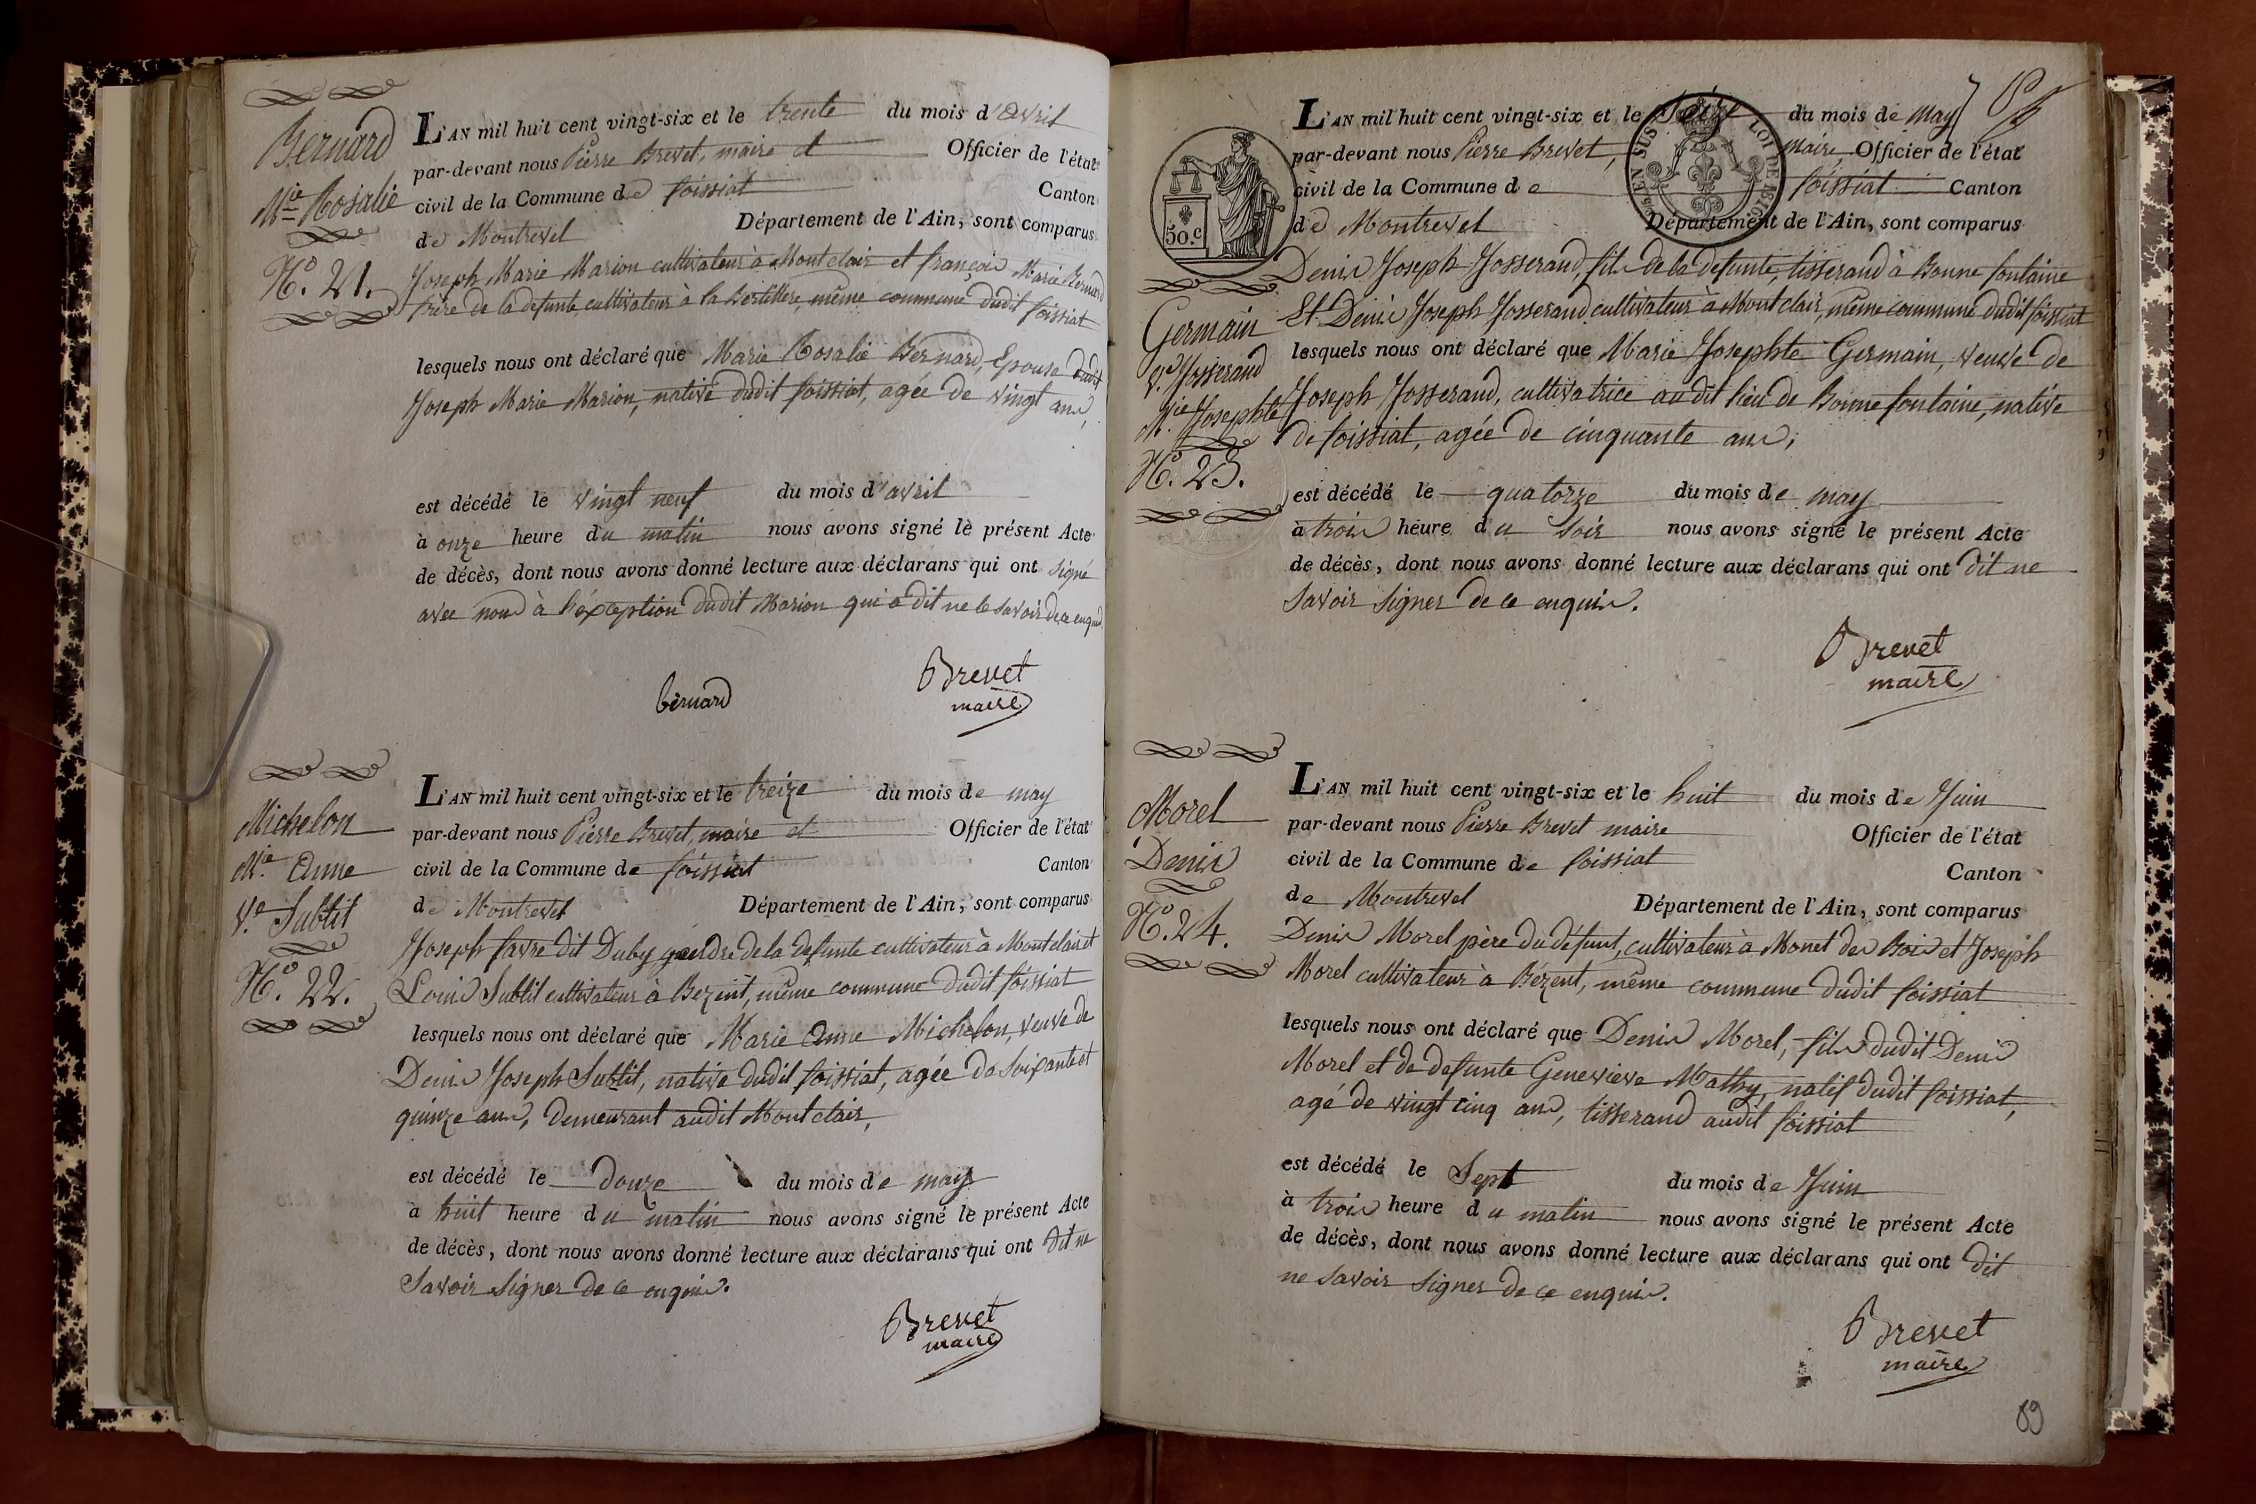 Bernard
Mie Rosalie
No. 21.
L'AN mil huit cent vingt-six et le trente du mois d'avril
par-devant nous Pierre Brevet, maire et Officier de l'état
civil de la Commune de foissiat Canton
de Montrevel Département de l'Ain, sont comparus
Joseph Marie Marion cultivateur à Montclair et françois Marie Bernard
frère de la defunte cultivateur à la Bertillere, même commune dudit foissiat
lesquels nous ont déclaré que Marie Rosalie Bernard, Epouse dudit
Joseph Marie Marion, native dudit foissiat, agée de vingt ans,
est décédé le vingt neuf du mois d'avril
à onze heure du matin nous avons signé le présent Acte
de décès, dont nous avons donné lecture aux déclarans qui ont signé
avec nous à l'éxception dudit Marion qui a dit ne le savoir de ce enquis
bernard
Brevet
maire
Michelon
Mie. Anne
Ve. Subtil
No. 22.
L'AN mil huit cent vingt-six et le treize du mois de may
par-devant nous Pierre Brevet, maire et Officier de l'état
civil de la Commune de foissiat Canton
de Montrevel Département de l'Ain, sont comparus
Joseph favre dit Duby gendre de la defunte cultivateur à Montclair et
Louis Subtil cultivateur à Bezint, même commune dudit foissiat
lesquels nous ont déclaré que Marie Anne Michelon, veuve de
Denis Joseph Subtil, native dudit foissiat, agée de soixante et
quinze ans, demeurant audit Montclair,
est décédé le douze du mois de may
à huit heure du matin nous avons signé le présent Acte
de décès, dont nous avons donné lecture aux déclarans qui ont dit ne
savoir signer de ce enquis.
Brevet
maire
50.c
EN SUS LOI DE 1816
Germain
Ve. Josserand
Mie. Josephte
No. 23.
L'AN mil huit cent vingt-six et le seize du mois de may
par-devant nous Pierre Brevet, maire, Officier de l'état
civil de la Commune de foissiat Canton
de Montrevel Département de l'Ain, sont comparus
Denis Joseph Josserand, fils de la defunte, tisserand à Bonne fontaine
Et Denis Joseph Josserand cultivateur à Montclair, même commune dudit foissiat
lesquels nous ont déclaré que Marie Josephte Germain, veuve de
Joseph Josserand, cultivatrice audit lieu de Bonne fontaine, native
de foissiat, agée de cinquante ans;
est décédé le quatorze du mois de may
à trois heure du soir nous avons signé le présent Acte
de décès, dont nous avons donné lecture aux déclarans qui ont dit ne
savoir signer de ce enquis.
Brevet
maire
Morel
Denis
No. 24.
L'AN mil huit cent vingt-six et le huit du mois de Juin
par-devant nous Pierre Brevet maire Officier de l'état
civil de la Commune de foissiat Canton
de Montrevel Département de l'Ain, sont comparus
Denis Morel père du défunt, cultivateur à Monet des Bois et Joseph
Morel cultivateur à Bézent, même commune dudit foissiat
lesquels nous ont déclaré que Denis Morel, fils dudit Denis
Morel et de defunte Genevieve Mathy, natif dudit foissiat,
agé de vingt cinq ans, tisserand audit foissiat
est décédé le Sept du mois de Juin
à trois heure du matin nous avons signé le présent Acte
de décès, dont nous avons donné lecture aux déclarans qui ont dit
ne savoir signer de ce enquis.
Brevet
maire
89